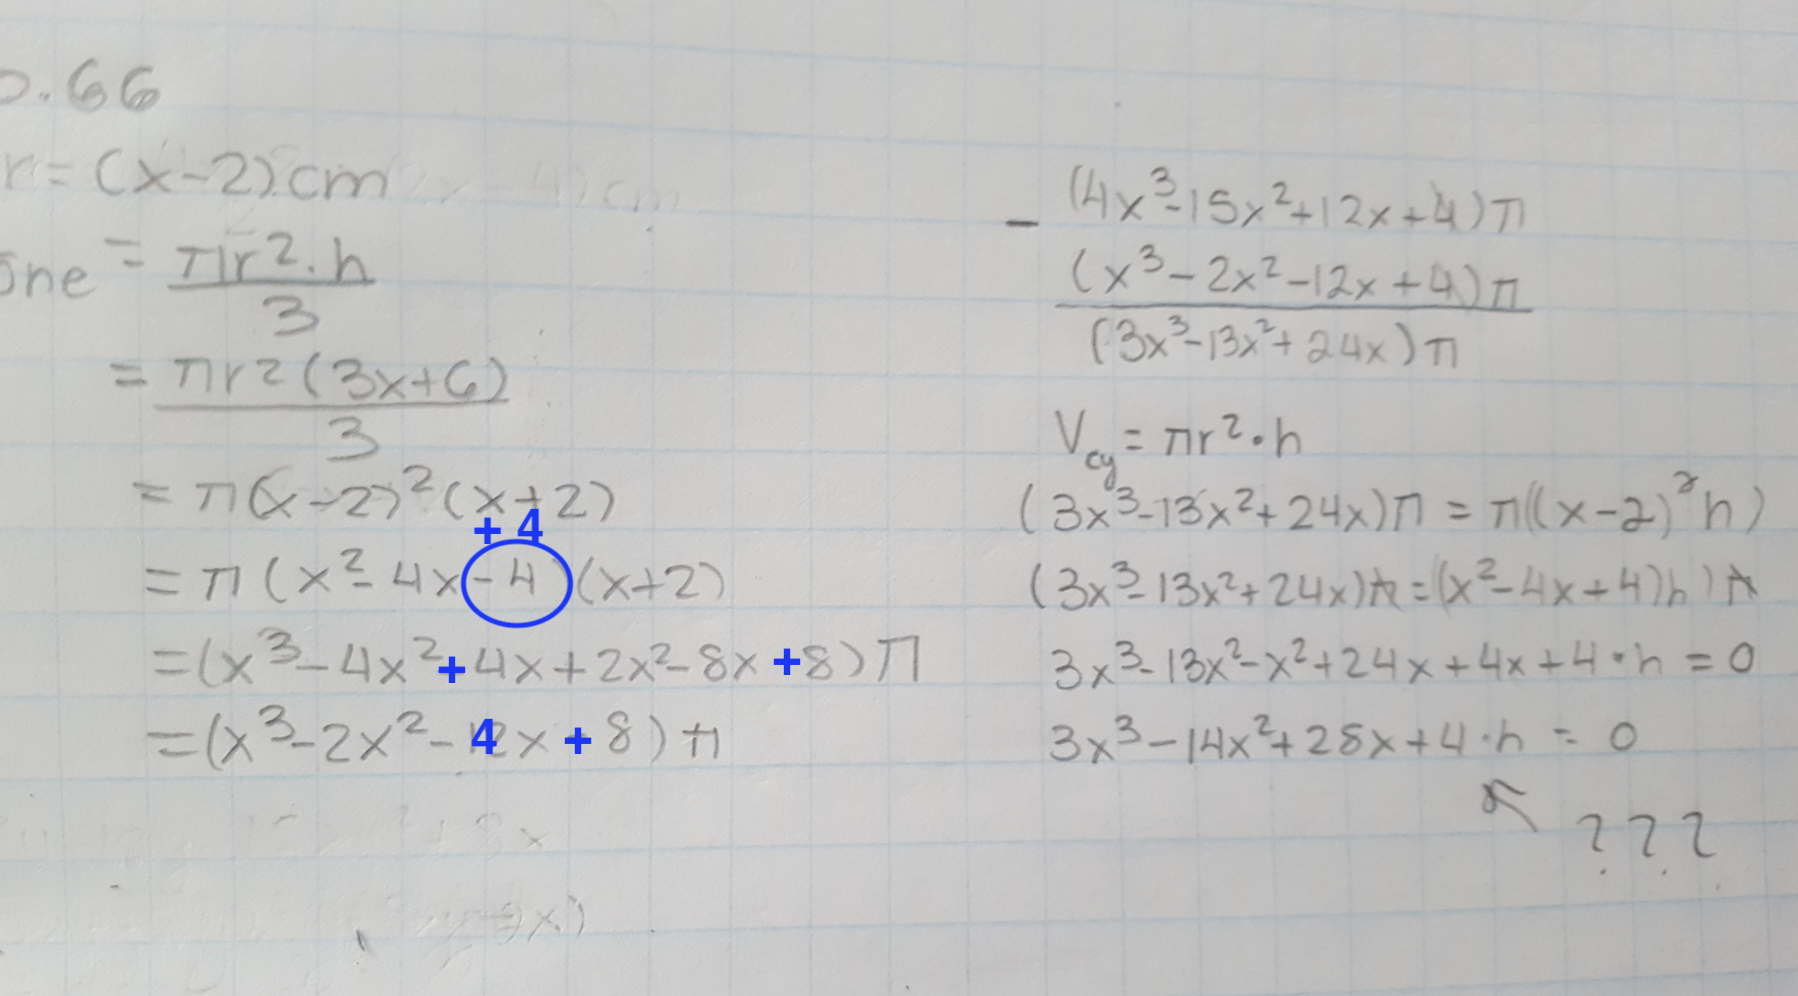 p.66
r = (x-2) cm
one = πr²·h / 3
= πr²(3x+6) / 3
= π(x-2)²(x+2)
+ 4
= π(x²-4x-4)(x+2)
= (x³-4x²+4x+2x²-8x+8)π
= (x³-2x²-4x+8)π
- (4x³-15x²+12x+4)π
(x³-2x²-12x+4)π
(3x³-13x²+24x)π
Vcy = πr²·h
(3x³-13x²+24x)π = π((x-2)²h)
(3x³-13x²+24x)π = (x²-4x+4)h)π
3x³-13x²-x²+24x+4x+4·h = 0
3x³-14x²+28x+4·h = 0
???